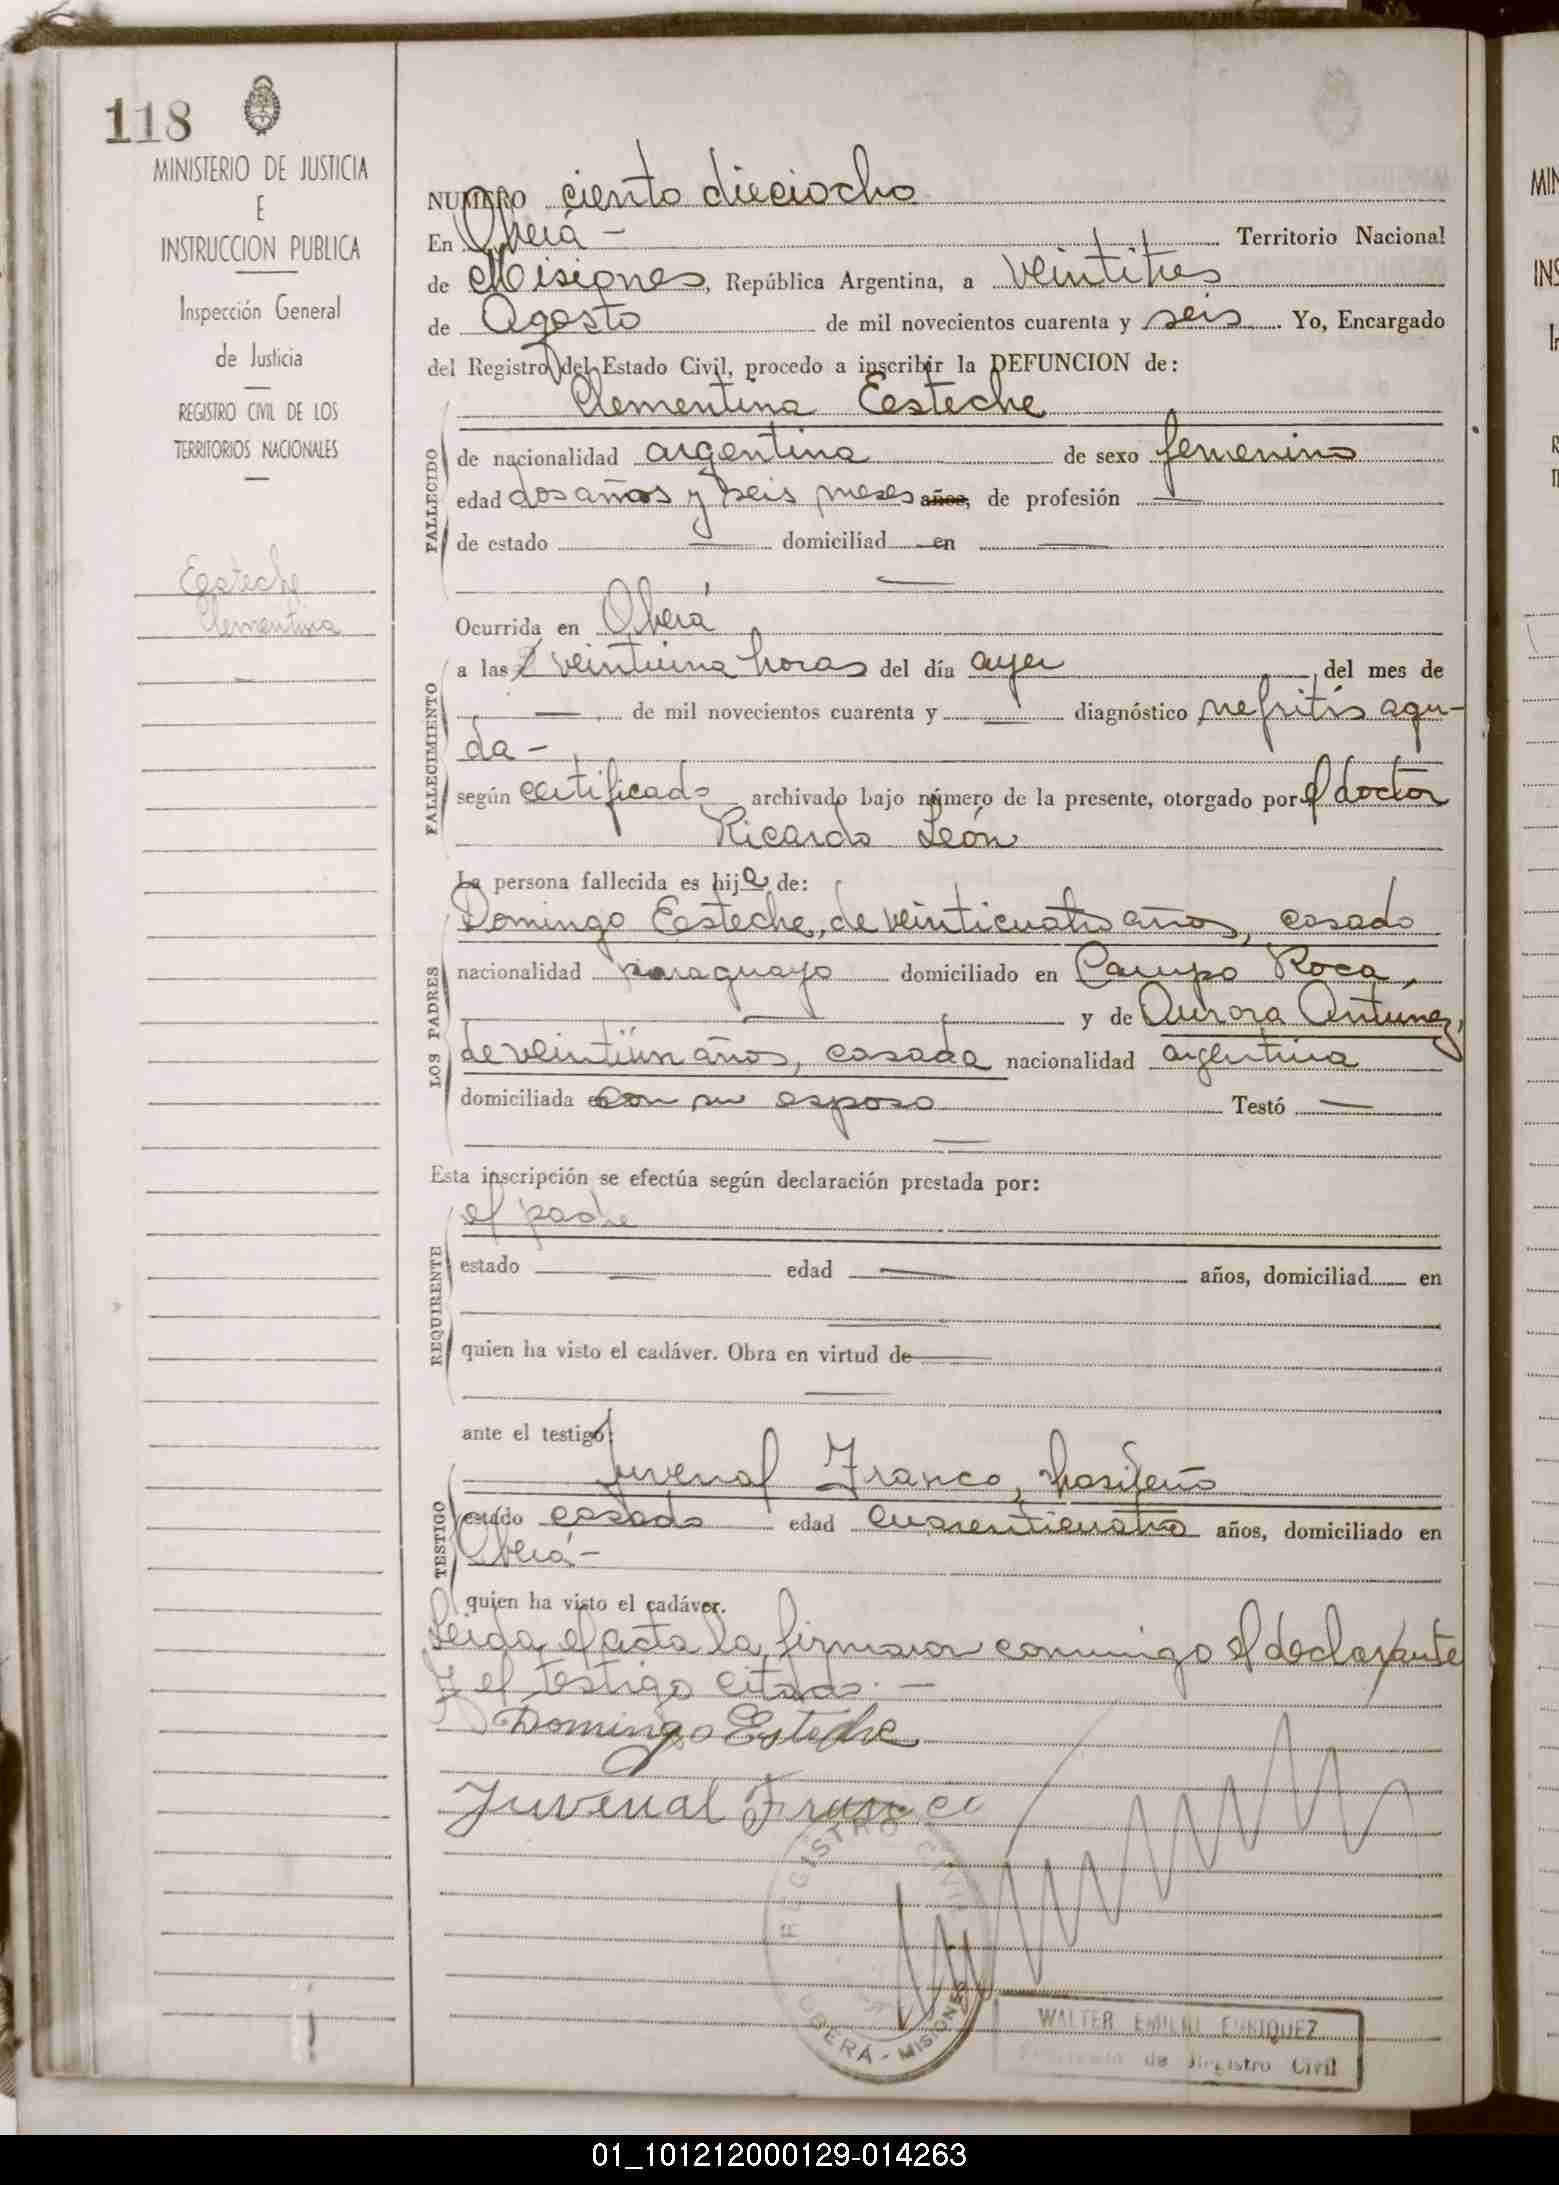 118
MINISTERIO DE JUSTICIA
E
INSTRUCCION PUBLICA
Inspección General
de Justicia
REGISTRO CIVIL DE LOS
TERRITORIOS NACIONALES
Eesteche
Clementina
NUMERO ciento dieciocho
En Oberá - Territorio Nacional
de Misiones, República Argentina, a veintitres
de Agosto de mil novecientos cuarenta y seis. Yo, Encargado
del Registro del Estado Civil, procedo a inscribir la DEFUNCION de:
Clementina Eesteche
FALLECIDO
de nacionalidad argentina de sexo femenino
edad dos años y seis meses años, de profesión —
de estado — domiciliad — en —
Ocurrida en Oberá
FALLECIMIENTO
a las veintiuna horas del día ayer del mes de
— de mil novecientos cuarenta y — diagnóstico nefritis agu-
da -
según certificado archivado bajo número de la presente, otorgado por el doctor
Ricardo León
La persona fallecida es hija de:
LOS PADRES
Domingo Eesteche, de veinticuatro años, casado
nacionalidad paraguayo domiciliado en Campo Roca,
— y de Aurora Antúnez,
de veintiún años, casada nacionalidad argentina
domiciliada con su esposo Testó —
Esta inscripción se efectúa según declaración prestada por:
el padre
REQUIRENTE
estado — edad — años, domiciliad en
quien ha visto el cadáver. Obra en virtud de —
ante el testigo:
Juvenal Franco, brasileño
TESTIGO
estado casado edad cuarenticuatro años, domiciliado en
Oberá -
quien ha visto el cadáver.
Leida el acta la firmaron conmigo el declarante
y el testigo citado. —
Domingo Esteche
Juvenal Franco
REGISTRO CIVIL
OBERÁ - MISIONES
WALTER EMILIO ENRIQUEZ
de Registro Civil
01_101212000129-014263